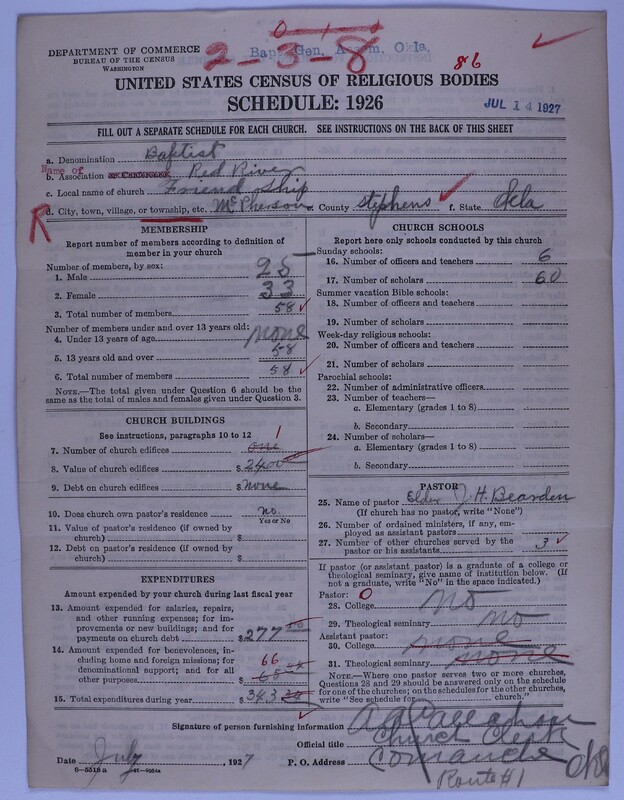 0 1
Bap. Gen. Assem. Okla.
2-3-8
86
DEPARTMENT OF COMMERCE
BUREAU OF THE CENSUS
WASHINGTON
UNITED STATES CENSUS OF RELIGIOUS BODIES
SCHEDULE: 1926
JUL 14 1927
FILL OUT A SEPARATE SCHEDULE FOR EACH CHURCH. SEE INSTRUCTIONS ON THE BACK OF THIS SHEET
a. Denomination Baptist
Name of
b. Association Red River
c. Local name of church Friend Ship
R d. City, town, village, or township, etc. McPherson e. County Stephens f. State Okla
MEMBERSHIP
Report number of members according to definition of
member in your church
Number of members, by sex:
1. Male 25
2. Female 33
3. Total number of members 58
Number of members under and over 13 years old:
4. Under 13 years of age none
5. 13 years old and over 58
6. Total number of members 58
NOTE.—The total given under Question 6 should be
same as the total of males and females given under Question 3.
CHURCH BUILDINGS
See instructions, paragraphs 10 to 12
7. Number of church edifices one 1
8. Value of church edifices $2400
9. Debt on church edifices $none
10. Does church own pastor's residence? no
Yes or No
11. Value of pastor's residence (if owned by
church) $
12. Debt on pastor's residence (if owned by
church) $
EXPENDITURES
Amount expended by your church during last fiscal year
13. Amount expended for salaries, repairs,
and other running expenses; for im-
provements or new buildings; and for
payments on church debt $277
14. Amount expended for benevolences, in-
cluding home and foreign missions; for
denominational support; and for all
other purposes 66
15. Total expenditures during year $343
CHURCH SCHOOLS
Report here only schools conducted by this church
Sunday schools:
16. Number of officers and teachers 6
17. Number of scholars 60
Summer vacation Bible schools:
18. Number of officers and teachers
19. Number of scholars
Week-day religious schools:
20. Number of officers and teachers
21. Number of scholars
Parochial schools:
22. Number of administrative officers
23. Number of teachers—
a. Elementary (grades 1 to 8)
b. Secondary
24. Number of scholars—
a. Elementary (grades 1 to 8)
b. Secondary
PASTOR
25. Name of pastor Elder J. H. Bearden
(If church has no pastor, write "None")
26. Number of ordained ministers, if any, em-
ployed as assistant pastors
27. Number of other churches served by the
pastor or his assistants 3
If pastor (or assistant pastor) is a graduate of a college or
theological seminary, give name of institution below. (If
not a graduate, write "No" in the space indicated.)
Pastor: 0
28. College no
29. Theological seminary no
Assistant pastor:
30. College none
31. Theological seminary none
NOTE.—Where one pastor serves two or more churches,
Questions 28 and 29 should be answered only on the schedule
for one of the churches; on the schedules for the other churches,
write "See schedule for church."
Signature of person furnishing information
Official title Church Clerk
Date July, 1927 P. O. Address Comanche Okla
6-5518a
Route #1